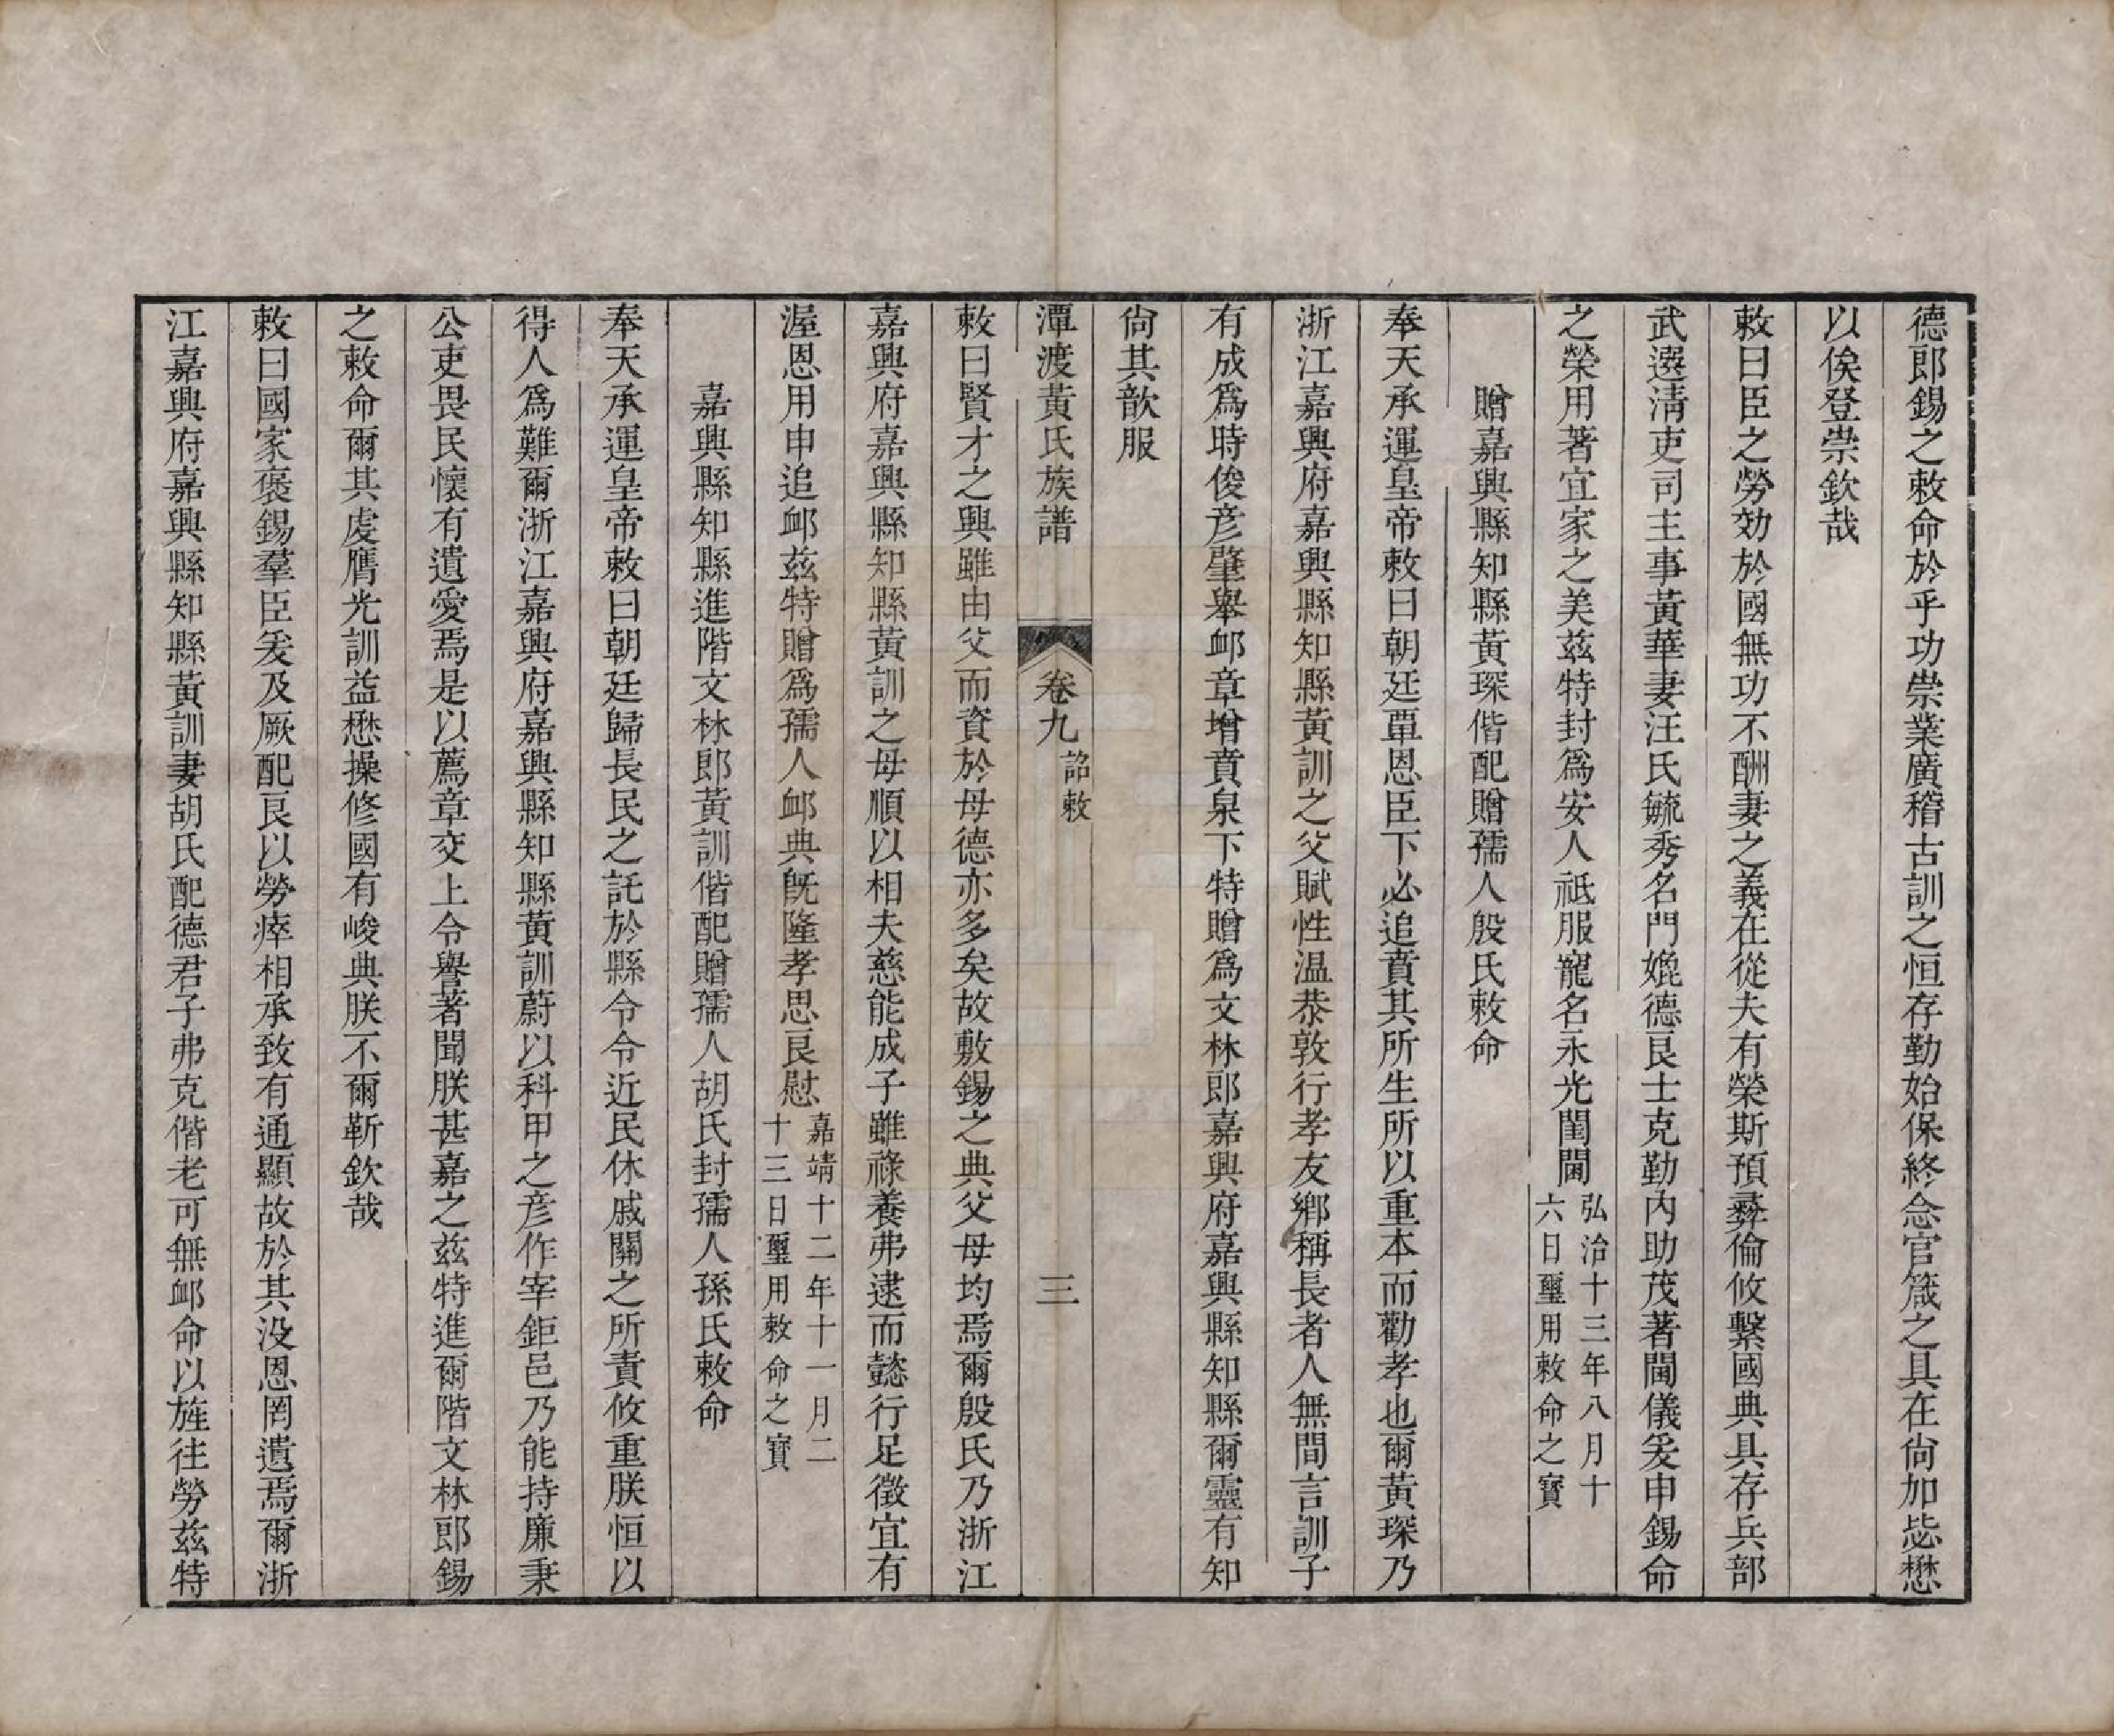 德郎錫之敕命於乎功崇業廣稽古訓之恒存勤始保終念官箴之具在尙加毖懋
以俟登崇欽哉
敕曰臣之勞効於國無功不酬妻之義在從夫有榮斯預彝倫攸繫國典具存兵部
武選淸吏司主事黃華妻汪氏毓秀名門媲德良士克勤內助茂著閫儀爰申錫命
之榮用著宜家之美茲特封爲安人祗服寵名永光閨閫弘治十三年八月十
六日璽用敕命之寶
贈嘉興縣知縣黃琛偕配贈孺人殷氏敕命
奉天承運皇帝敕曰朝廷覃恩臣下必追賁其所生所以重本而勸孝也爾黃琛乃
浙江嘉興府嘉興縣知縣黃訓之父賦性温恭敦行孝友鄉稱長者人無間言訓子
有成爲時俊彥肇舉卹章增賁泉下特贈爲文林郎嘉興府嘉興縣知縣爾靈有知
尙其歆服
潭渡黃氏族譜 卷九 詔敕 三
敕曰賢才之興雖由父而資於母德亦多矣故敷錫之典父母均焉爾殷氏乃浙江
嘉興府嘉興縣知縣黃訓之母順以相夫慈能成子雖祿養弗逮而懿行足徵宜有
渥恩用申追卹茲特贈爲孺人卹典旣隆孝思良慰嘉靖十二年十一月二
十三日璽用敕命之寶
嘉興縣知縣進階文林郎黃訓偕配贈孺人胡氏封孺人孫氏敕命
奉天承運皇帝敕曰朝廷歸長民之託於縣令令近民休戚關之所責攸重朕恒以
得人爲難爾浙江嘉興府嘉興縣知縣黃訓蔚以科甲之彥作宰鉅邑乃能持廉秉
公吏畏民懷有遺愛焉是以薦章交上令譽著聞朕甚嘉之茲特進爾階文林郎錫
之敕命爾其虔膺光訓益懋操修國有峻典朕不爾靳欽哉
敕曰國家褒錫羣臣爰及厥配良以勞瘁相承致有通顯故於其没恩罔遺焉爾浙
江嘉興府嘉興縣知縣黃訓妻胡氏配德君子弗克偕老可無卹命以旌往勞茲特